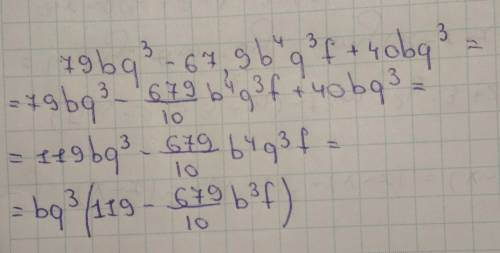 79bq³ - 67 9b⁴q³f + 40bq³ =
= 79bq³ - 679/10 b⁴q³f + 40bq³ =
= 119bq³ - 679/10 b⁴q³f =
= bq³(119 - 679/10 b³f)